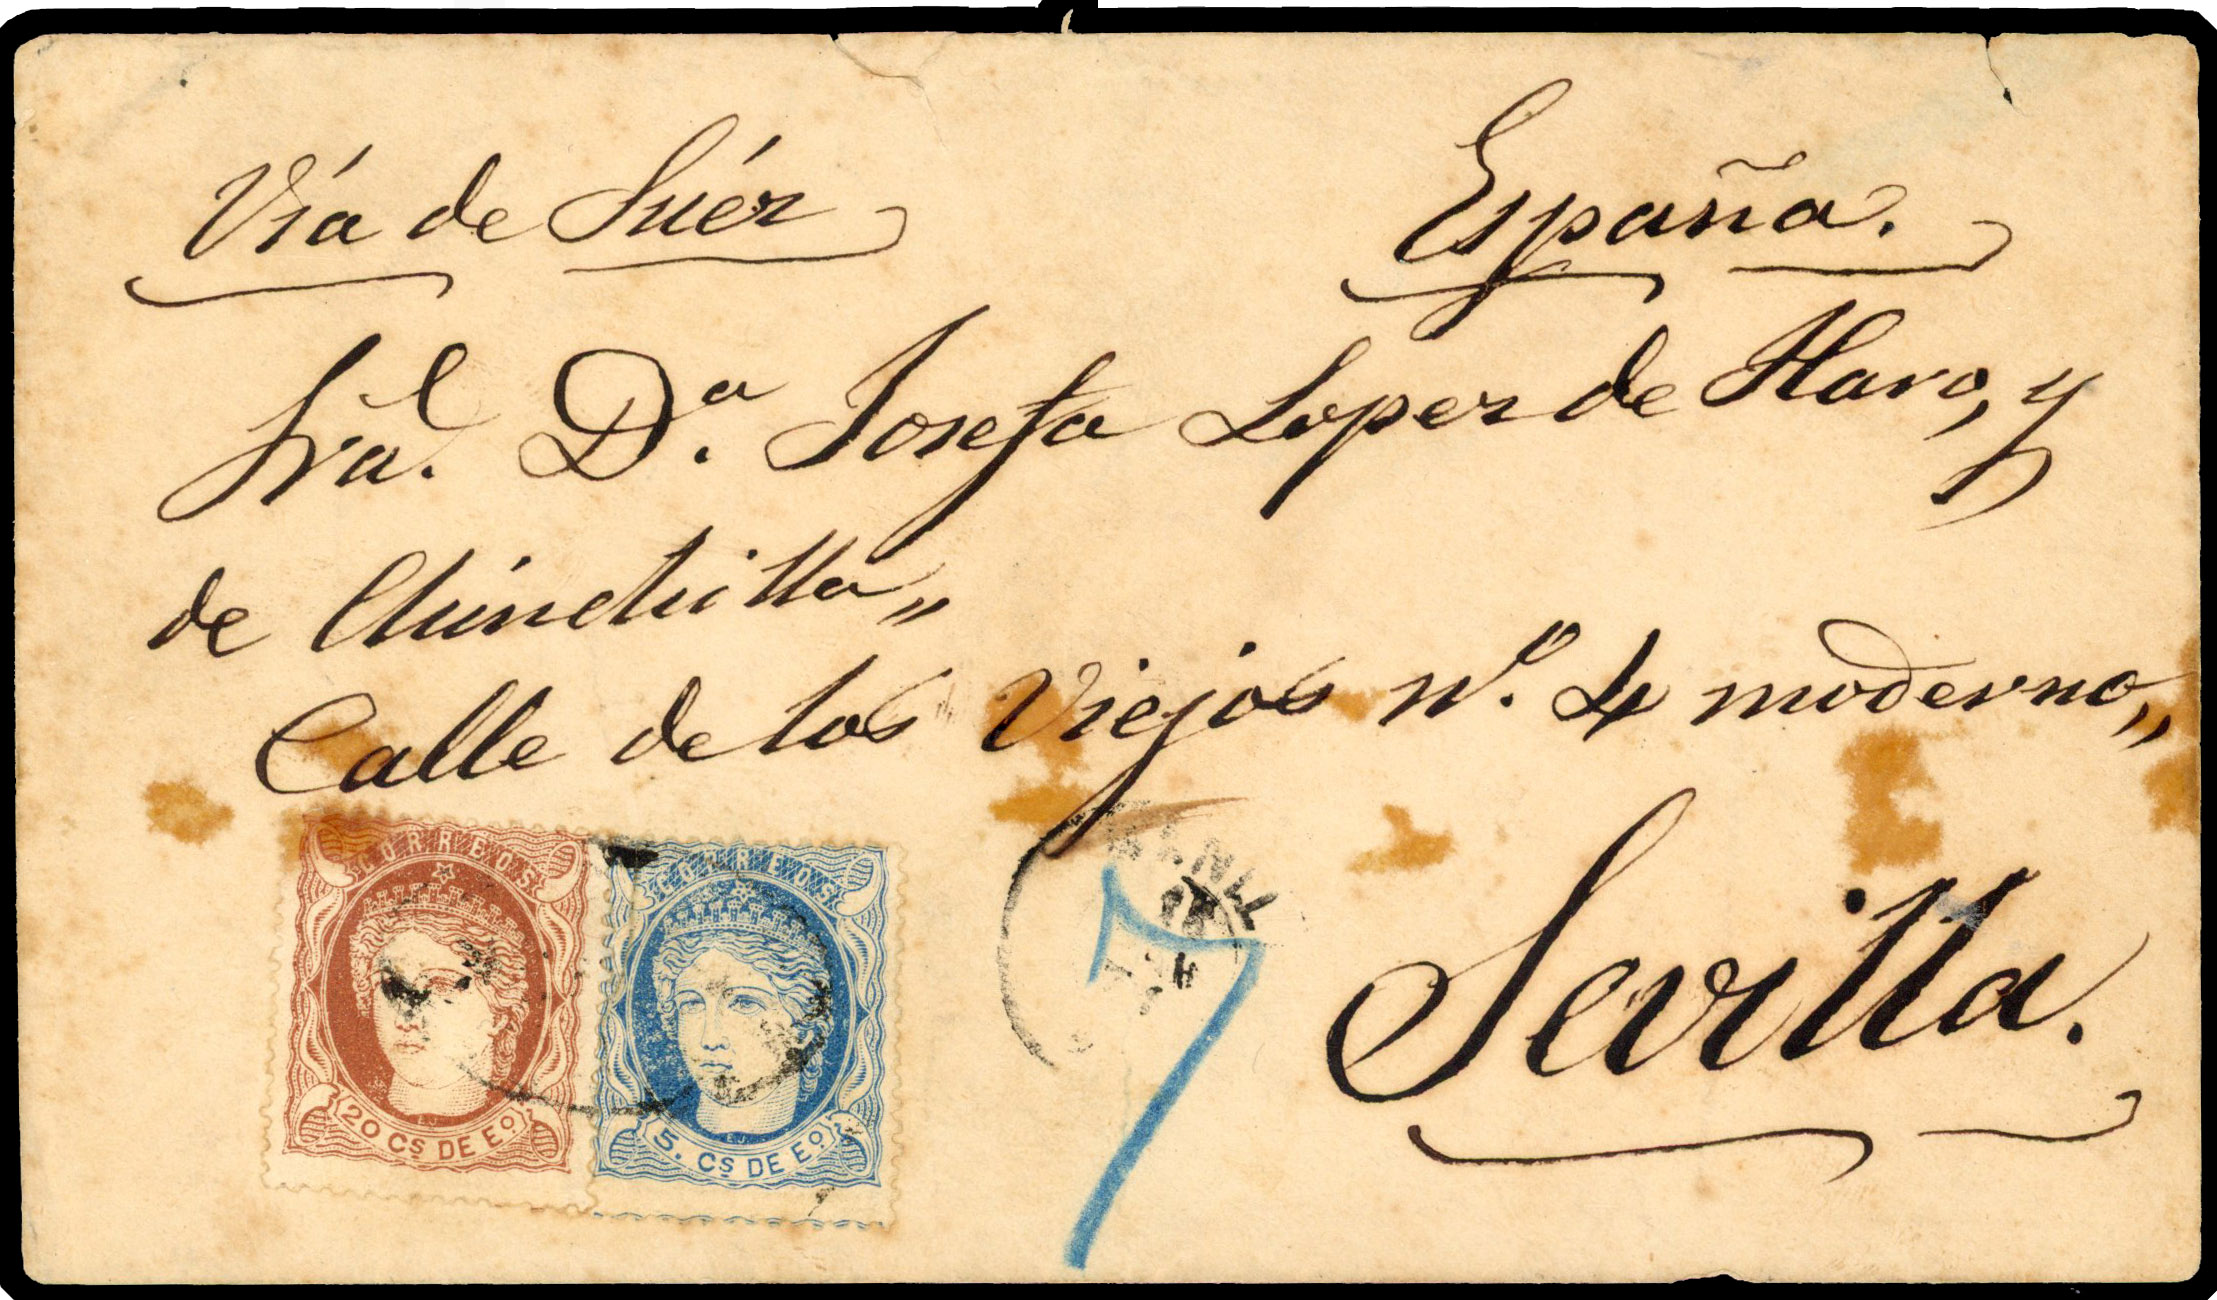 Vía de Suéz
España.
Sra. Dª. Josefa Lopez de Haro, y
de Chinchilla,,
Calle de los Viejos nº. 4 moderno,,
Sevilla.
CORREOS
20 Cs DE Eº
CORREOS
5. Cs DE Eº
7